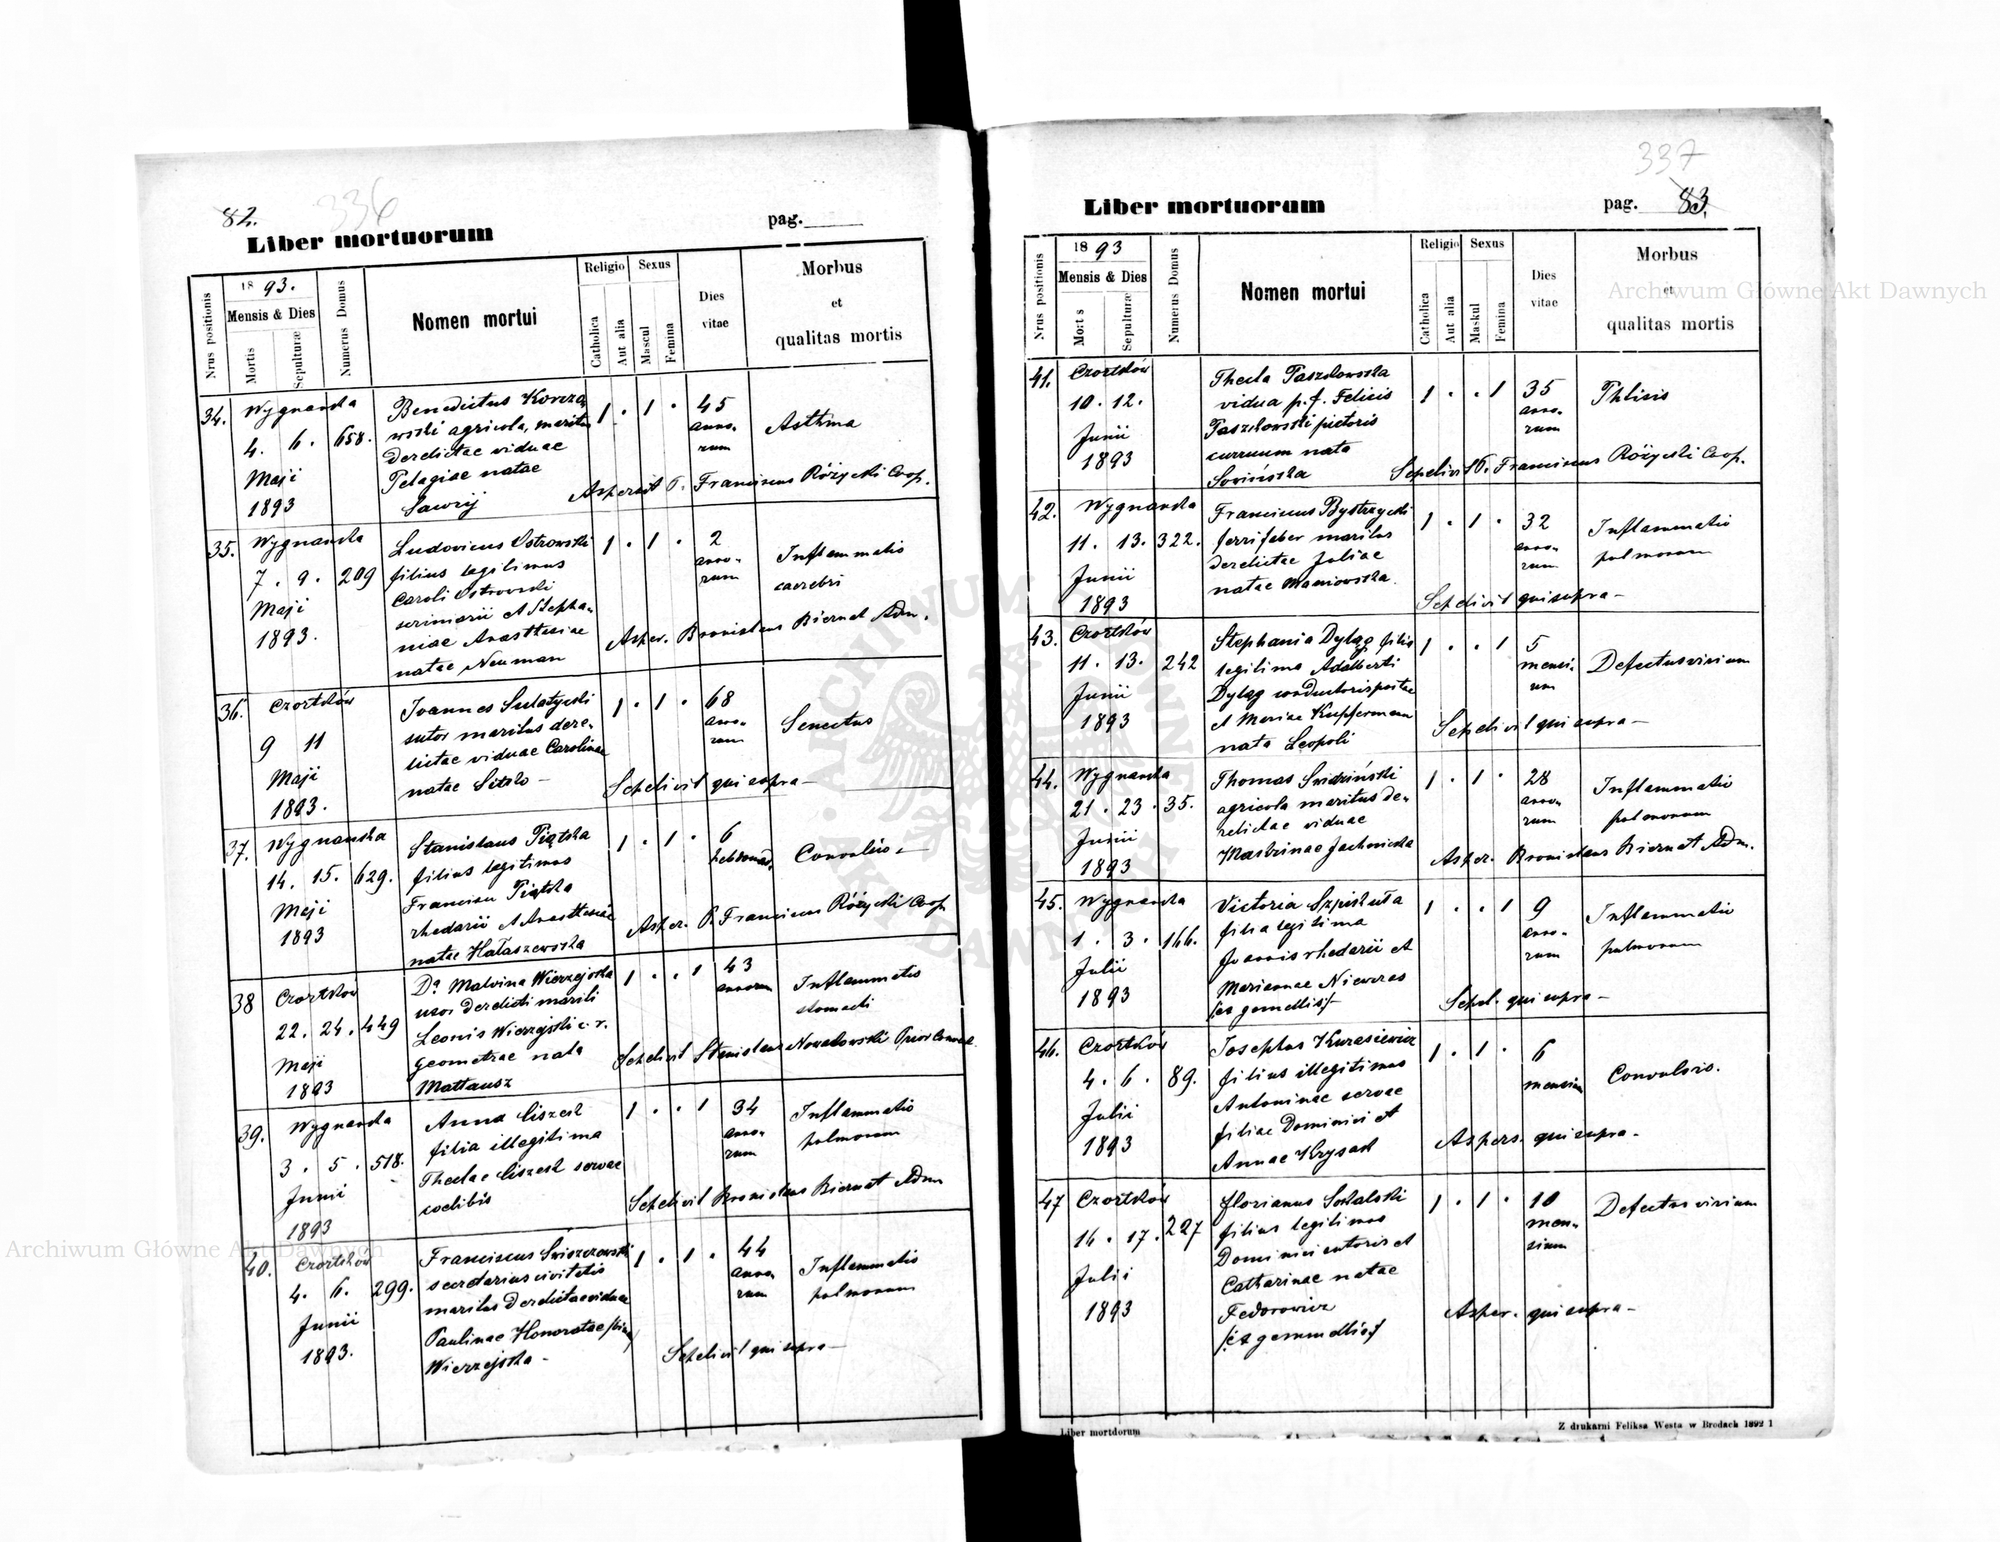 82. 336
Liber mortuorum pag.
Nrus positionis
18 93.
Mensis & Dies
Mortis
Sepulturæ
Numerus Domus
Nomen mortui
Religio
Catholica
Aut alia
Sexus
Mascul
Femina
Dies
vitae
Morbus
et
qualitas mortis
34. Wygnanka
4. 6. 658.
Maji
1893
Benedictus Korcza
wski agricola, maritus
derelictae viduae
Pelagiae natae
Sawrij
1 . 1 .
45
anno-
rum
Asthma
Aspersit P. Franciscus Różycki Coop.
35. Wygnanka
7. 9. 209
Maji
1893.
Ludovicus Ostrowski
filius legitimus
Caroli Ostrowski
scriniarii et Stepha-
niae Anastasiae
natae Neuman
1 . 1 .
2
anno-
rum
Inflammatio
cerebri
Asper. Bronislaus Biernat Adm.
36. Czortków
9 11
Maji
1893.
Joannes Sulatycki
sutor maritus dere-
lictae viduae Carolinae
natae Sitko -
1 . 1 .
68
anno-
rum
Senectus
Sepelivit qui supra -
37. Wygnanka
14. 15. 629.
Maji
1893
Stanislaus Piątka
filius legitimus
Francisci Piątka
rhedarii et Anastasiae
natae Hałaszewska
1 . 1 .
6
hebdomad.
Convulsio -
Asper. P. Franciscus Różycki Coop
38 Czortków
22. 24. 449
Maji
1893
Da Malvina Wierzejska
uxor derelicti mariti
Leonis Wierzejski c. r.
geometrae nata
Mattausz
1 . . 1
43
annorum
Inflammatio
stomachi
Sepelivit Stanislaus Nowakowski Prior Convent.
39. Wygnanka
3. 5. 518.
Junii
1893
Anna Ciszek
filia illegitima
Theclae Ciszek servae
coelibis
1 . . 1
34
anno-
rum
Inflammatio
pulmonum
Sepelivit Bronislaus Biernat Adm
40. Czortków
4. 6. 299.
Junii
1893.
Franciscus
secretarius civitatis
maritus derelictae viduae
Paulinae Honoratae
Wierzejska -
1 . 1 .
44
anno-
rum
Inflammatio
pulmonum
Sepelivit qui supra -
337
Liber mortuorum pag. 83.
Nrus positionis
18 93
Mensis & Dies
Mort s
Sepulturæ
Numerus Domus
Nomen mortui
Religio
Catholica
Aut alia
Sexus
Maskul
Femina
Dies
vitae
Morbus
et
qualitas mortis
41. Czortków
10. 12.
Junii
1893
Thecla Paszkowska
vidua p. f. Felicis
Paszkowski pictoris
curruum nata
Sowińska
1 . . 1
35
anno-
rum
Phtisis
Sepelivit P. Franciscus Różycki Coop.
42. Wygnanka
11. 13. 322.
Junii
1893
Franciscus Bystrzycki
ferrifaber maritus
derelictae Juliae
natae Maniowska.
1 . 1 .
32
anno-
rum
Inflammatio
pulmonum
Sepelivit qui supra -
43. Czortków
11. 13. 242
Junii
1893
Stephania Dyląg filia
legitima Adalberti
Dyląg conductoris postae
et Mariae Kupfermann
nata Leopoli
1 . . 1
5
mensi-
um
Defectus virium
Sepelivit qui supra -
44. Wygnanka
21. 23. 35.
Junii
1893
Thomas Swidziński
agricola maritus de-
relictae viduae
1 . 1 .
28
anno-
rum
Inflammatio
pulmonum
Asper. Bronislaus Biernat Adm.
45. Wygnanka
1. 3. 166.
Julii
1893
Victoria Szpikuła
filia legitima
Joannis rhedarii et
Mariannae Niewras
/:ex gemellis:/
1 . . 1
9
anno-
rum
Inflammatio
pulmonum
Sepel. qui supra -
46. Czortków
4. 6. 89.
Julii
1893
Josephus Kurasiewicz
filius illegitimus
Antoninae servae
filiae Dominici et
Annae Krysak
1 . 1 .
6
mensium
Convulsio.
Aspers. qui supra -
47 Czortków
16. 17. 227
Julii
1893
Florianus Sokalski
filius legitimus
Dominici sutoris et
Catharinae natae
Fedorowicz
/:ex gemmellis:/
1 . 1 .
10
men-
sium
Defectus virium
Asper. qui supra -
Liber mortdorum
Z drukarni Feliksa Westa w Brodach 1892 1
Archiwum Główne Akt Dawnych
Archiwum Główne Akt Dawnych